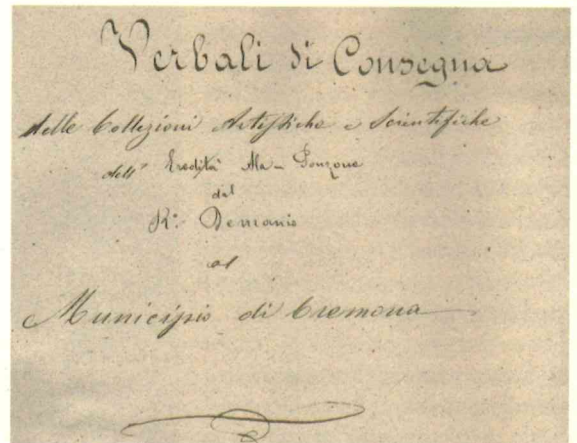 Verbali di Consegna
delle Collezioni Artistiche e Scientifiche
dell' Eredità Ala-Ponzone
dal
R.º Demanio
al
Municipio di Cremona